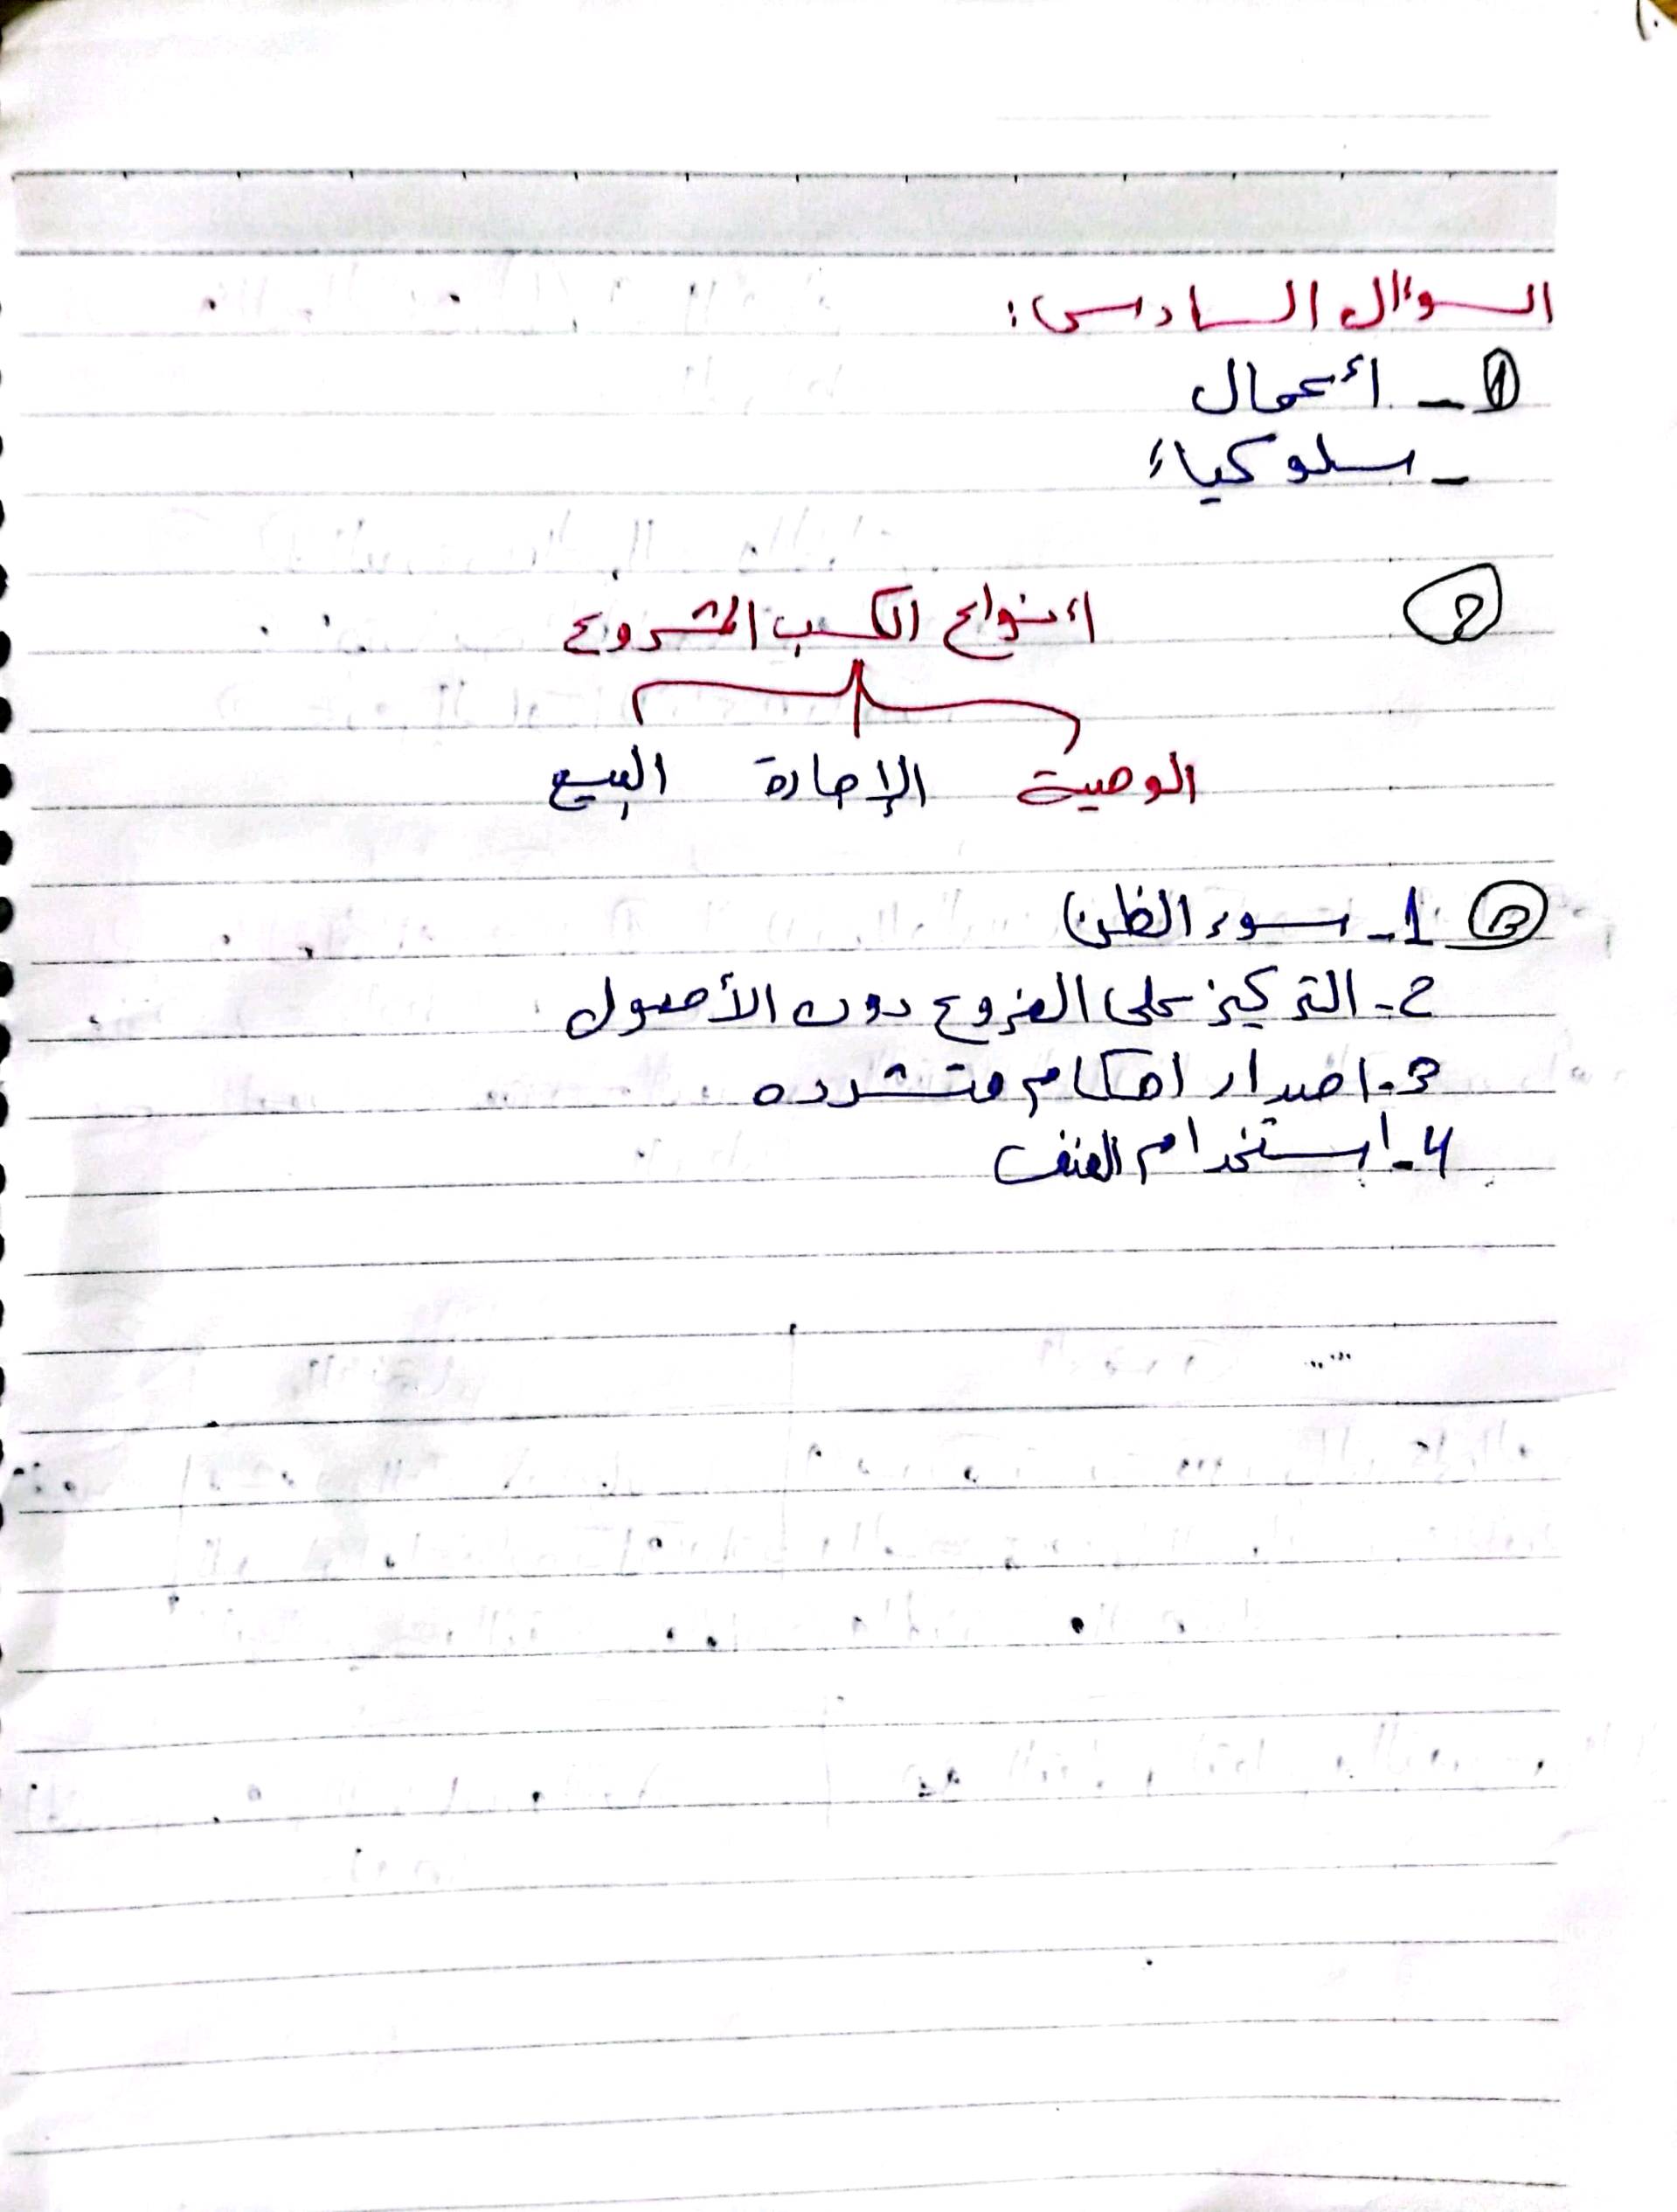 السؤال السادس:
① - أعمال
- سلوكياء
② أنواع الكسب المشروع
الوصية الإجارة البيع
③ 1- سوء الظن
2- التركيز على الفروع دون الأصول
3- اصدار احكام متشدده
4- استخدام العنف